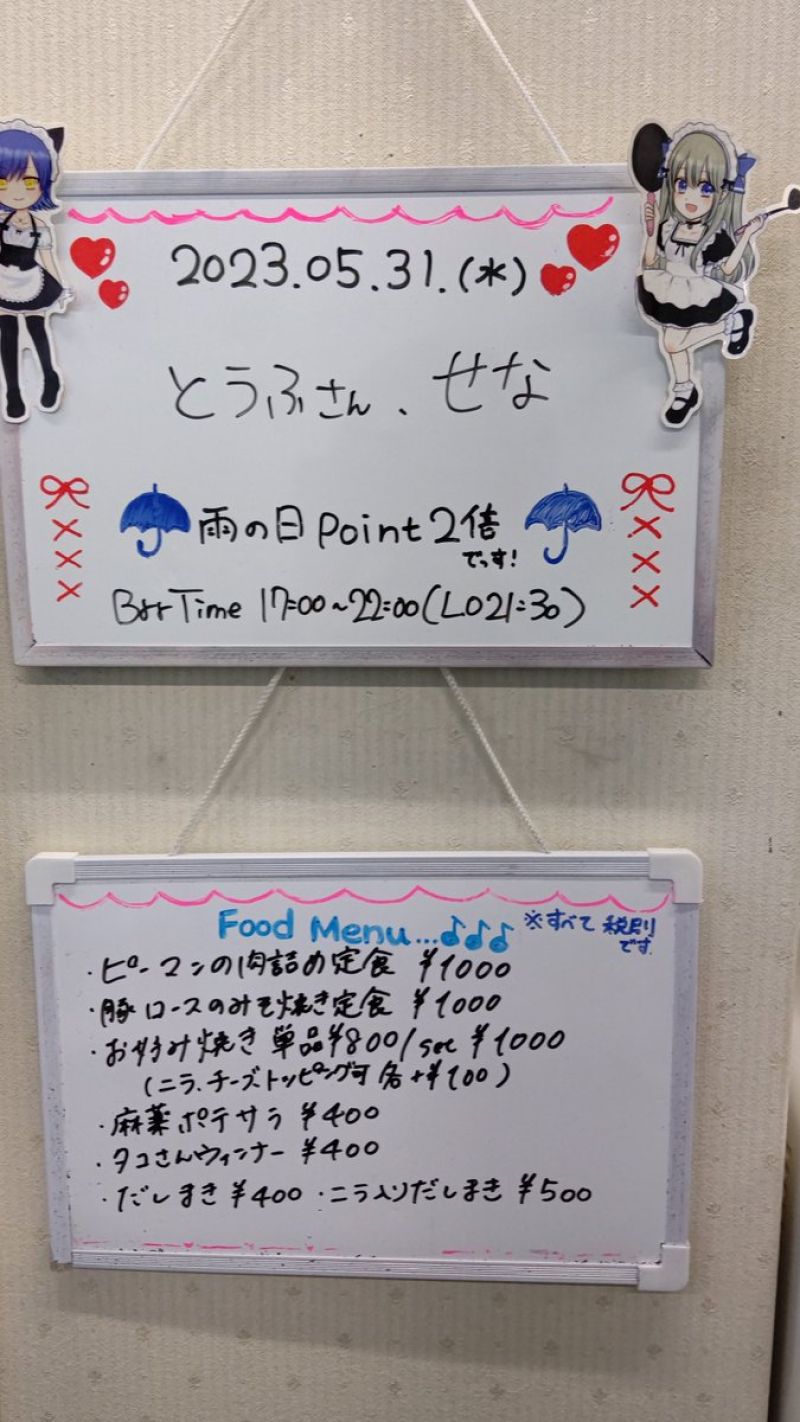 2023.05.31.(水)
とうふさん、せな
雨の日 Point 2倍
でっす!
Bar Time 17:00~22:00(LO21:30)
Food Menu...♪♪♪ ※すべて税別
です
・ピーマンの肉詰め定食 ¥1000
・豚ロースのみそ焼き定食 ¥1000
・お好み焼き 単品¥800/set ¥1000
(ニラ、チーズトッピング可 各+¥100)
・麻薬ポテサラ ¥400
・タコさんウィンナー ¥400
・だしまき ¥400 ・ニラ入りだしまき ¥500